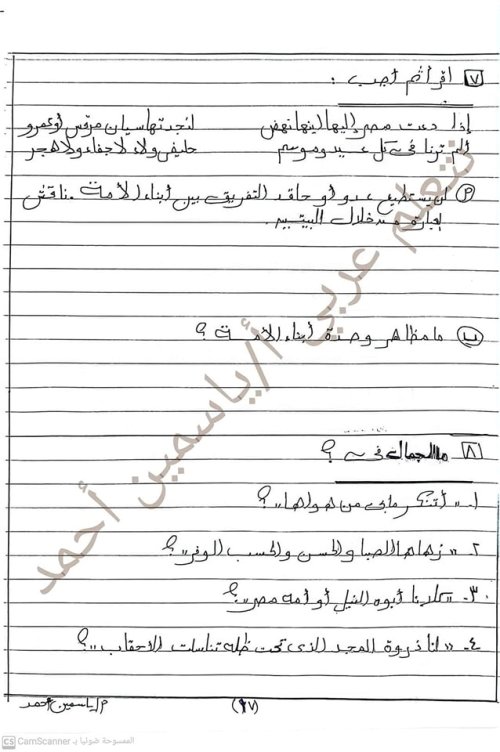 ٧ اقرأ ثم أجب :
إذا دعت مصر إليها ابنها نهض لنجدتها سيان مرقس أو عمرو
ألم ترنا فى كل عيد وموسم حليفى ولاء لا جفاء ولا هجر
P لن يستطيع عدو أو حاقد التفريق بين أبناء الأمة . ناقش
العبارة من خلال البيتين .
ب ما مظاهر وحدة أبناء الأمة ؟
٨ ما الجمال فى ؟
١. " أتنكر مابى من هواها " ؟
٢. " زهاها الصبا والحسن والحسب الوفر " ؟
٣. " كلانا أبوه النيل أو أمه مصر " ؟
٤. " لنا ذروة المجد الذى تحت ظله تناسلت الأحقاب " ؟
نتعلم عربي أ/ياسمين أحمد
(١٧)
م/ياسمين أحمد
CS CamScanner الممسوحة ضوئيا بـ